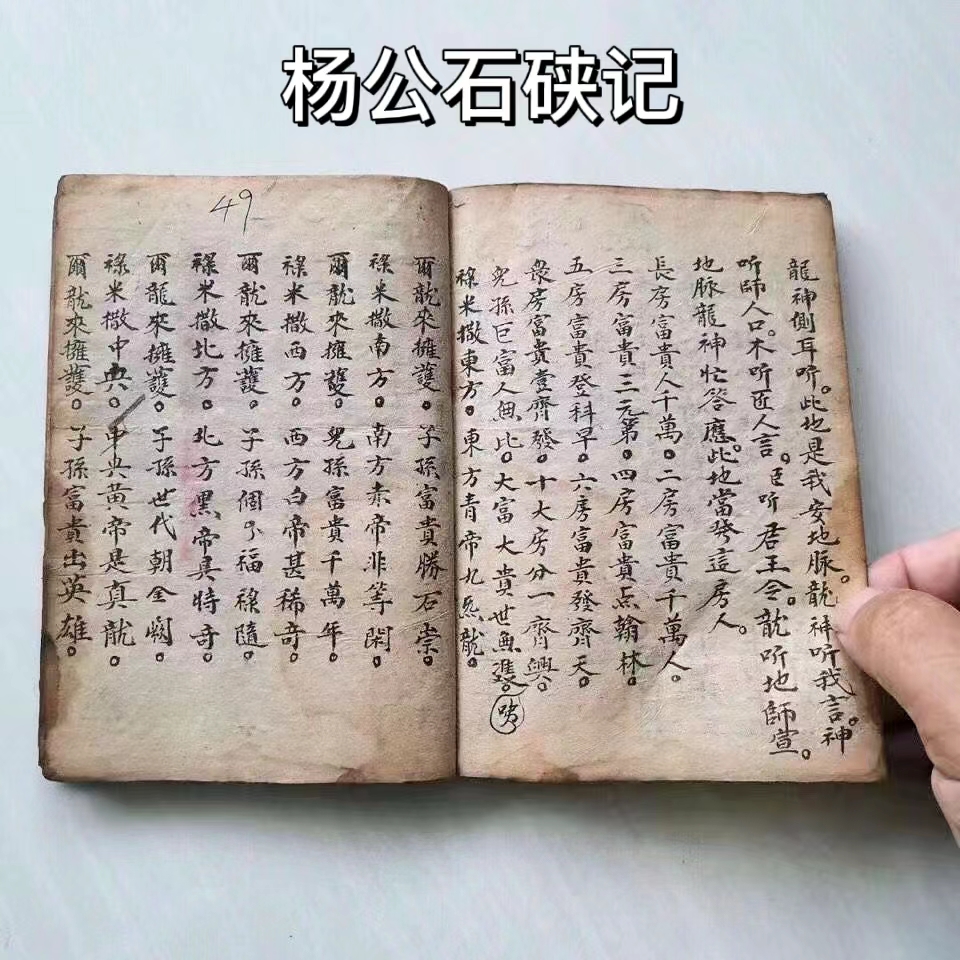 杨公石硖记
龍神側耳听。此地是我安地脉。龍神听我言。神
听師人口。木听匠人言。臣听君王令。龍听地師宣。
地脉龍神忙答應。此地當發這房人。
長房富貴人千萬。二房富貴千萬人。
三房富貴三元第。四房富貴点翰林。
五房富貴登科早。六房富貴發齊天。
喪房富貴壹齊發。十大房分一齊興。
兒孫巨富人無比。大富大貴世無
祿米撒東方。東方青帝九炁龍。
49
爾龍來擁護。子孫富貴勝石崇。
祿米撒南方。南方赤帝非等閑。
爾龍來擁護。兒孫富貴千萬年。
祿米撒西方。西方白帝甚稀奇。
爾龍來擁護。子孫個个福祿隨。
祿米撒北方。北方黑帝真特奇。
爾龍來擁護。子孫世代朝金闕。
祿米撒中央。中央黃帝是真龍。
爾龍來擁護。子孫富貴出英雄。